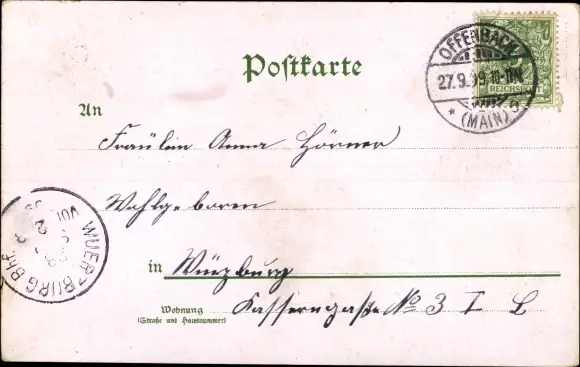 Postkarte
OFFENBACH
27.9.99. 11-12N
* (MAIN) 9.
REICHSPOST
An
Fräulein Anna Hörner
Wohlgeboren
in Würzburg
Wohnung
(Straße und Hausnummer)
Kasserngaße No 3 I L
WUERZBURG Bhf.